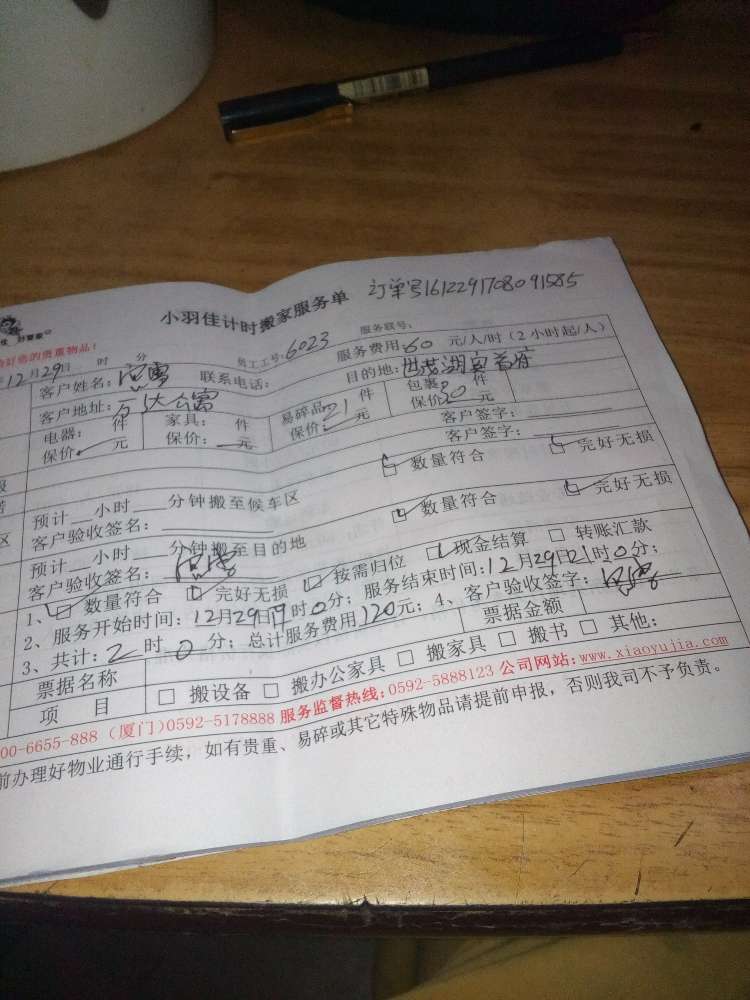 小羽佳计时搬家服务单 订单号1612291708091585
好慷家
好您的贵重物品!
12月29日 时 分 员工工号:6023 服务联号:
客户姓名: 联系电话: 服务费用:60 元/人/时(2小时起/人)
客户地址:万达公寓 目的地:世茂湖滨首府
电器: 件 家具: 件 易碎品: 件 包裹: 件
保价: 元 保价: 元 保价: 元 保价: 元
客户签字:
客户签字:
数量符合 完好无损
预计 小时 分钟搬至候车区
客户验收签名: 数量符合 完好无损
预计 小时 分钟搬至目的地
客户验收签名:
1、数量符合 完好无损 按需归位 现金结算 转账汇款
2、服务开始时间:12月29日19时0分;服务结束时间:12月29日21时0分;
3、共计:2时0分;总计服务费用120元;4、客户验收签字:
票据名称 票据金额
项 目 搬设备 搬办公家具 搬家具 搬书 其他:
00-6655-888 (厦门)0592-5178888 服务监督热线:0592-5888123 公司网站:www.xiaoyujia.com
前办理好物业通行手续,如有贵重、易碎或其它特殊物品请提前申报,否则我司不予负责。